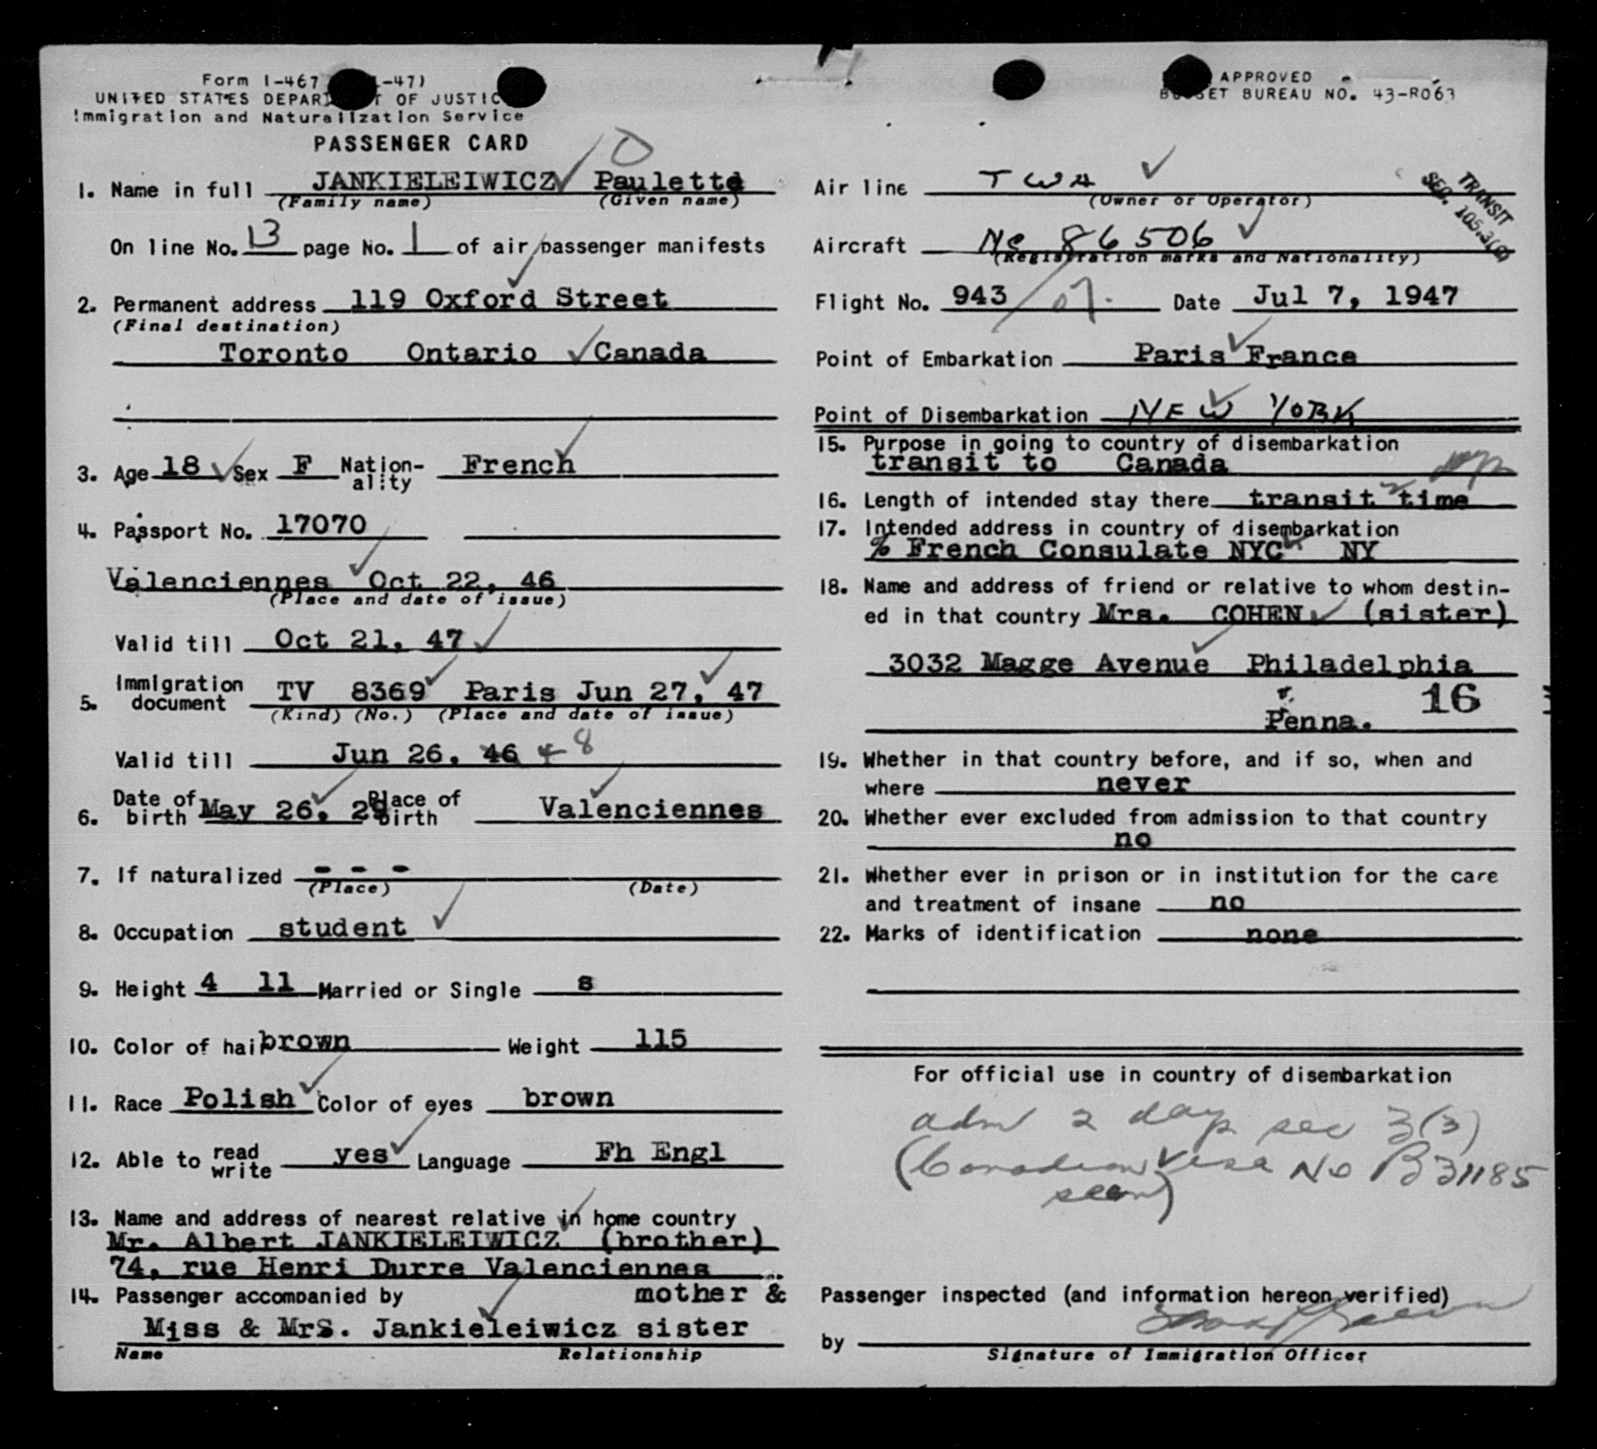 Form I-467 -47)
UNITED STATES DEPAR T OF JUSTIC
Immigration and Naturalization Service
PASSENGER CARD
APPROVED
B ET BUREAU NO. 43-R063
TRANSIT
SEC. 105.3(a)
1. Name in full JANKIELEIWICZ Paulette
(Family name) (Given name)
On line No. 13 page No. 1 of air passenger manifests
2. Permanent address 119 Oxford Street
(Final destination)
Toronto Ontario Canada
3. Age 18 Sex F Nation-
ality French
4. Passport No. 17070
Valenciennes Oct 22, 46
(Place and date of issue)
Valid till Oct 21, 47
5. Immigration
document TV 8369 Paris Jun 27, 47
(Kind) (No.) (Place and date of issue)
Valid till Jun 26, 46 48
6. Date of
birth May 26, 29 Place of
birth Valenciennes
7. If naturalized - - -
(Place) (Date)
8. Occupation student
9. Height 4 11 Married or Single s
10. Color of hair brown Weight 115
11. Race Polish Color of eyes brown
12. Able to read
write yes Language Fh Engl
13. Name and address of nearest relative in home country
Mr. Albert JANKIELEIWICZ (brother)
74, rue Henri Durre Valenciennes
14. Passenger accompanied by mother &
Miss & MrS. Jankieleiwicz sister
Name Relationship
Air line TWA
(Owner or Operator)
Aircraft Nc 86506
(Registration marks and Nationality)
Flight No. 943 / 07. Date Jul 7, 1947
Point of Embarkation Paris France
Point of Disembarkation NEW YORK
15. Purpose in going to country of disembarkation
transit to Canada
16. Length of intended stay there transit time
17. Intended address in country of disembarkation
% French Consulate NYC NY
18. Name and address of friend or relative to whom destin-
ed in that country Mrs. COHEN (sister)
3032 Magge Avenue Philadelphia
16
Penna.
19. Whether in that country before, and if so, when and
where never
20. Whether ever excluded from admission to that country
no
21. Whether ever in prison or in institution for the care
and treatment of insane no
22. Marks of identification none
For official use in country of disembarkation
adm 2 days sec 3(3)
(Canadian visa No B31185
seen)
Passenger inspected (and information hereon verified)
by
Signature of Immigration Officer